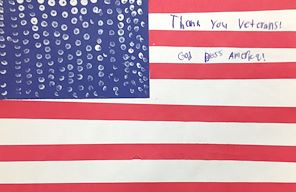 Thank you Veterans!
God Bless America!